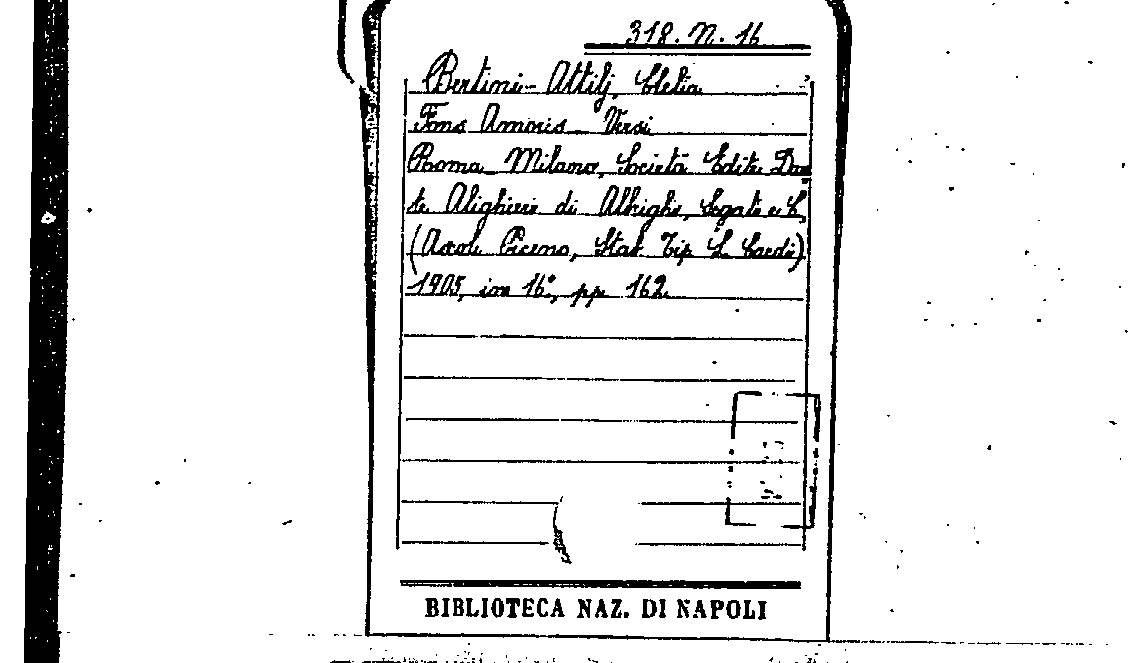 318. N. 16
Bertini-Attilj, Clelia
Fons Amoris - Versi
Roma - Milano, Società Edit. Dan
te Alighieri di Albrighi, Segati e C.
(Ascoli Piceno, Stab. Tip. L. Cardi)
1905, in 16°, pp. 162.
BIBLIOTECA NAZ. DI NAPOLI